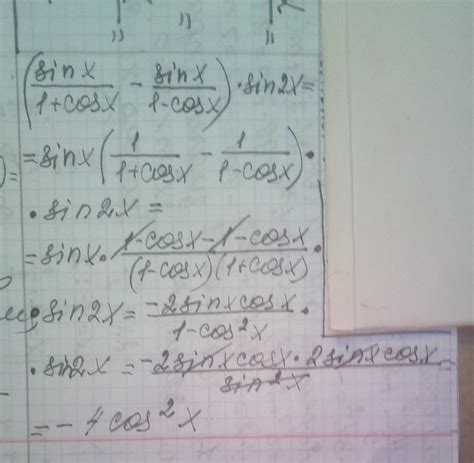 (sinx/(1+cosx) - sinx/(1-cosx)) · sin2x =
= sinx (1/(1+cosx) - 1/(1-cosx)) ·
· sin2x =
= sinx · (1-cosx-1-cosx)/((1-cosx)(1+cosx)) ·
· sin2x = (-2sinxcosx)/(1-cos²x) ·
· sin2x = (-2sinxcosx · 2sinxcosx)/(sin²x)
= -4cos²x